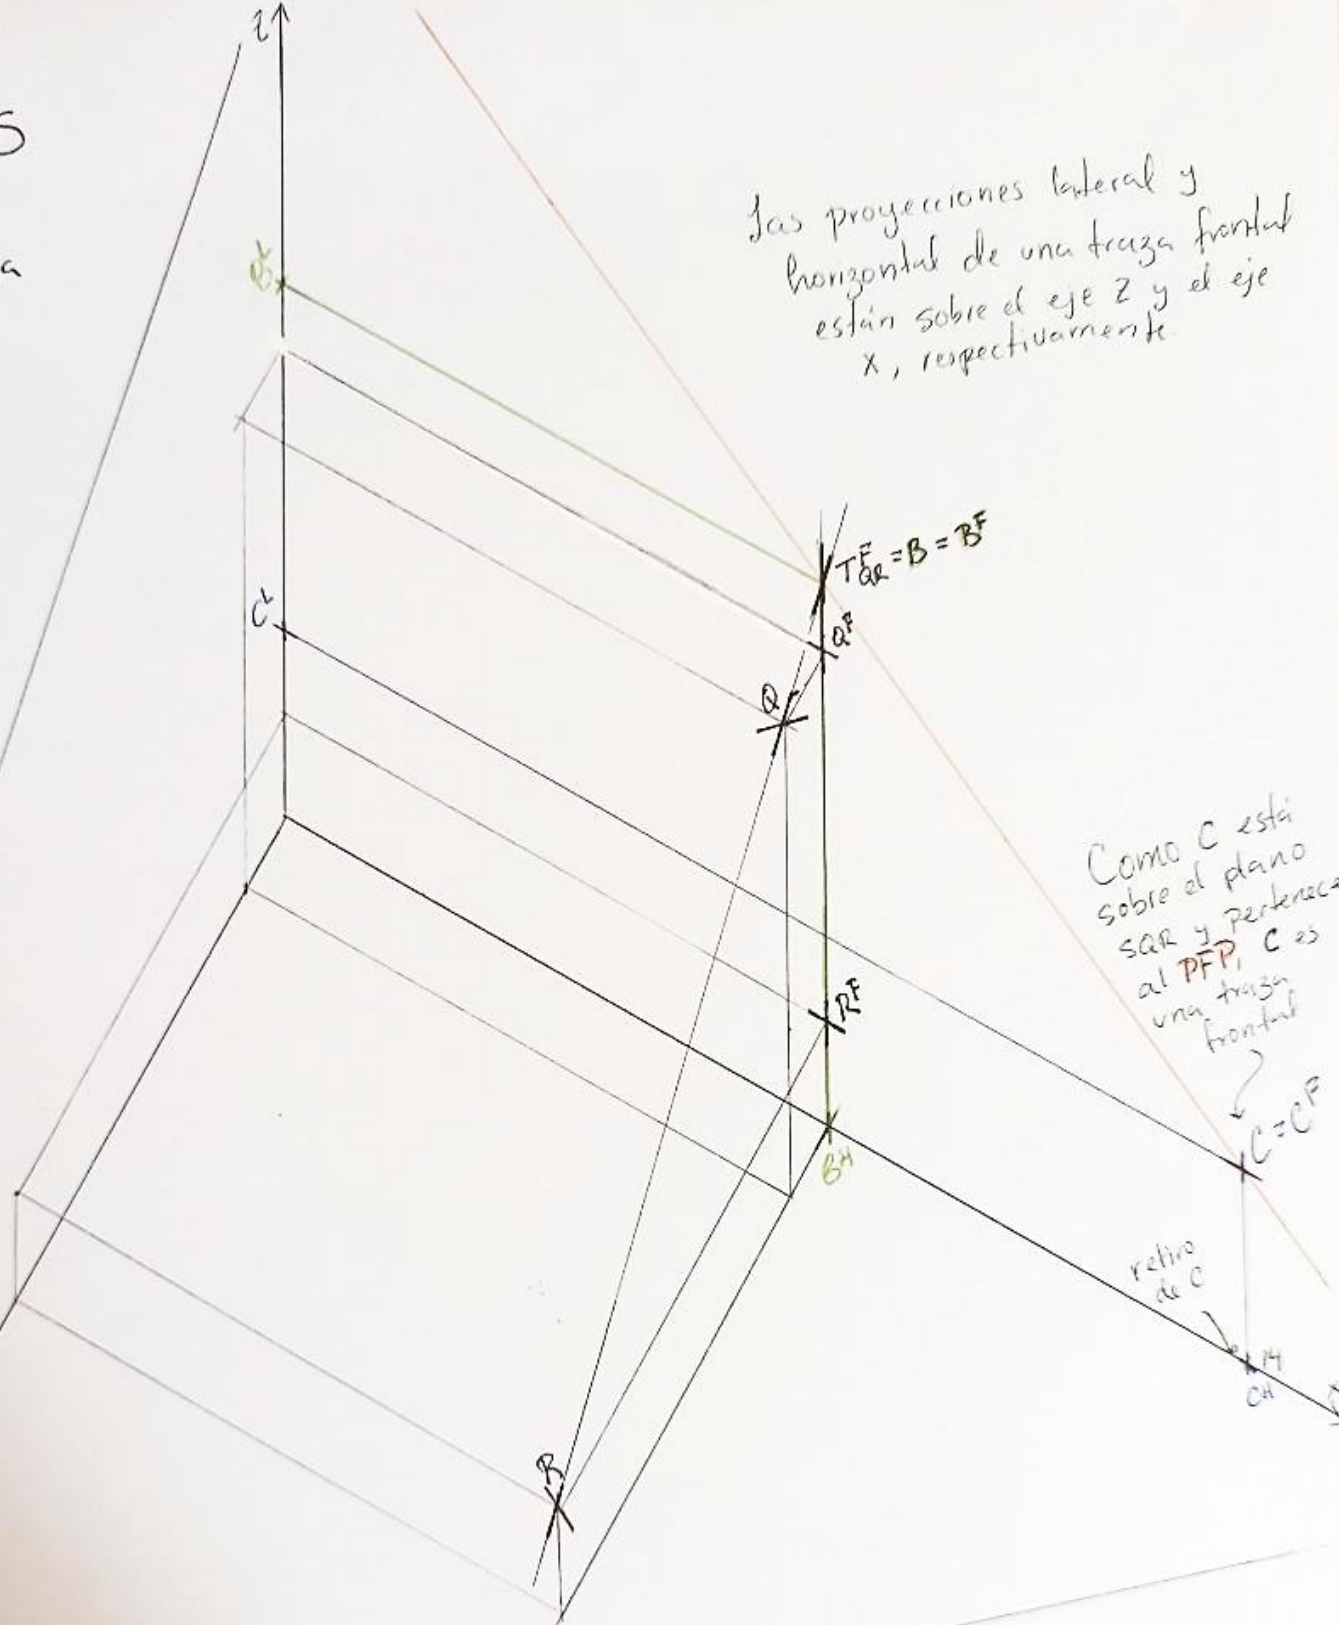 S
a
Z
B^L
Las proyecciones lateral y
horizontal de una traza frontal
están sobre el eje Z y el eje
X, respectivamente.
T^F_QR = B = B^F
Q^F
Q
C^L
Como C está
sobre el plano
SQR y pertenece
al PFP, C es
una traza
frontal
R^F
C = C^F
B^H
retiro
de C
14
CH
R